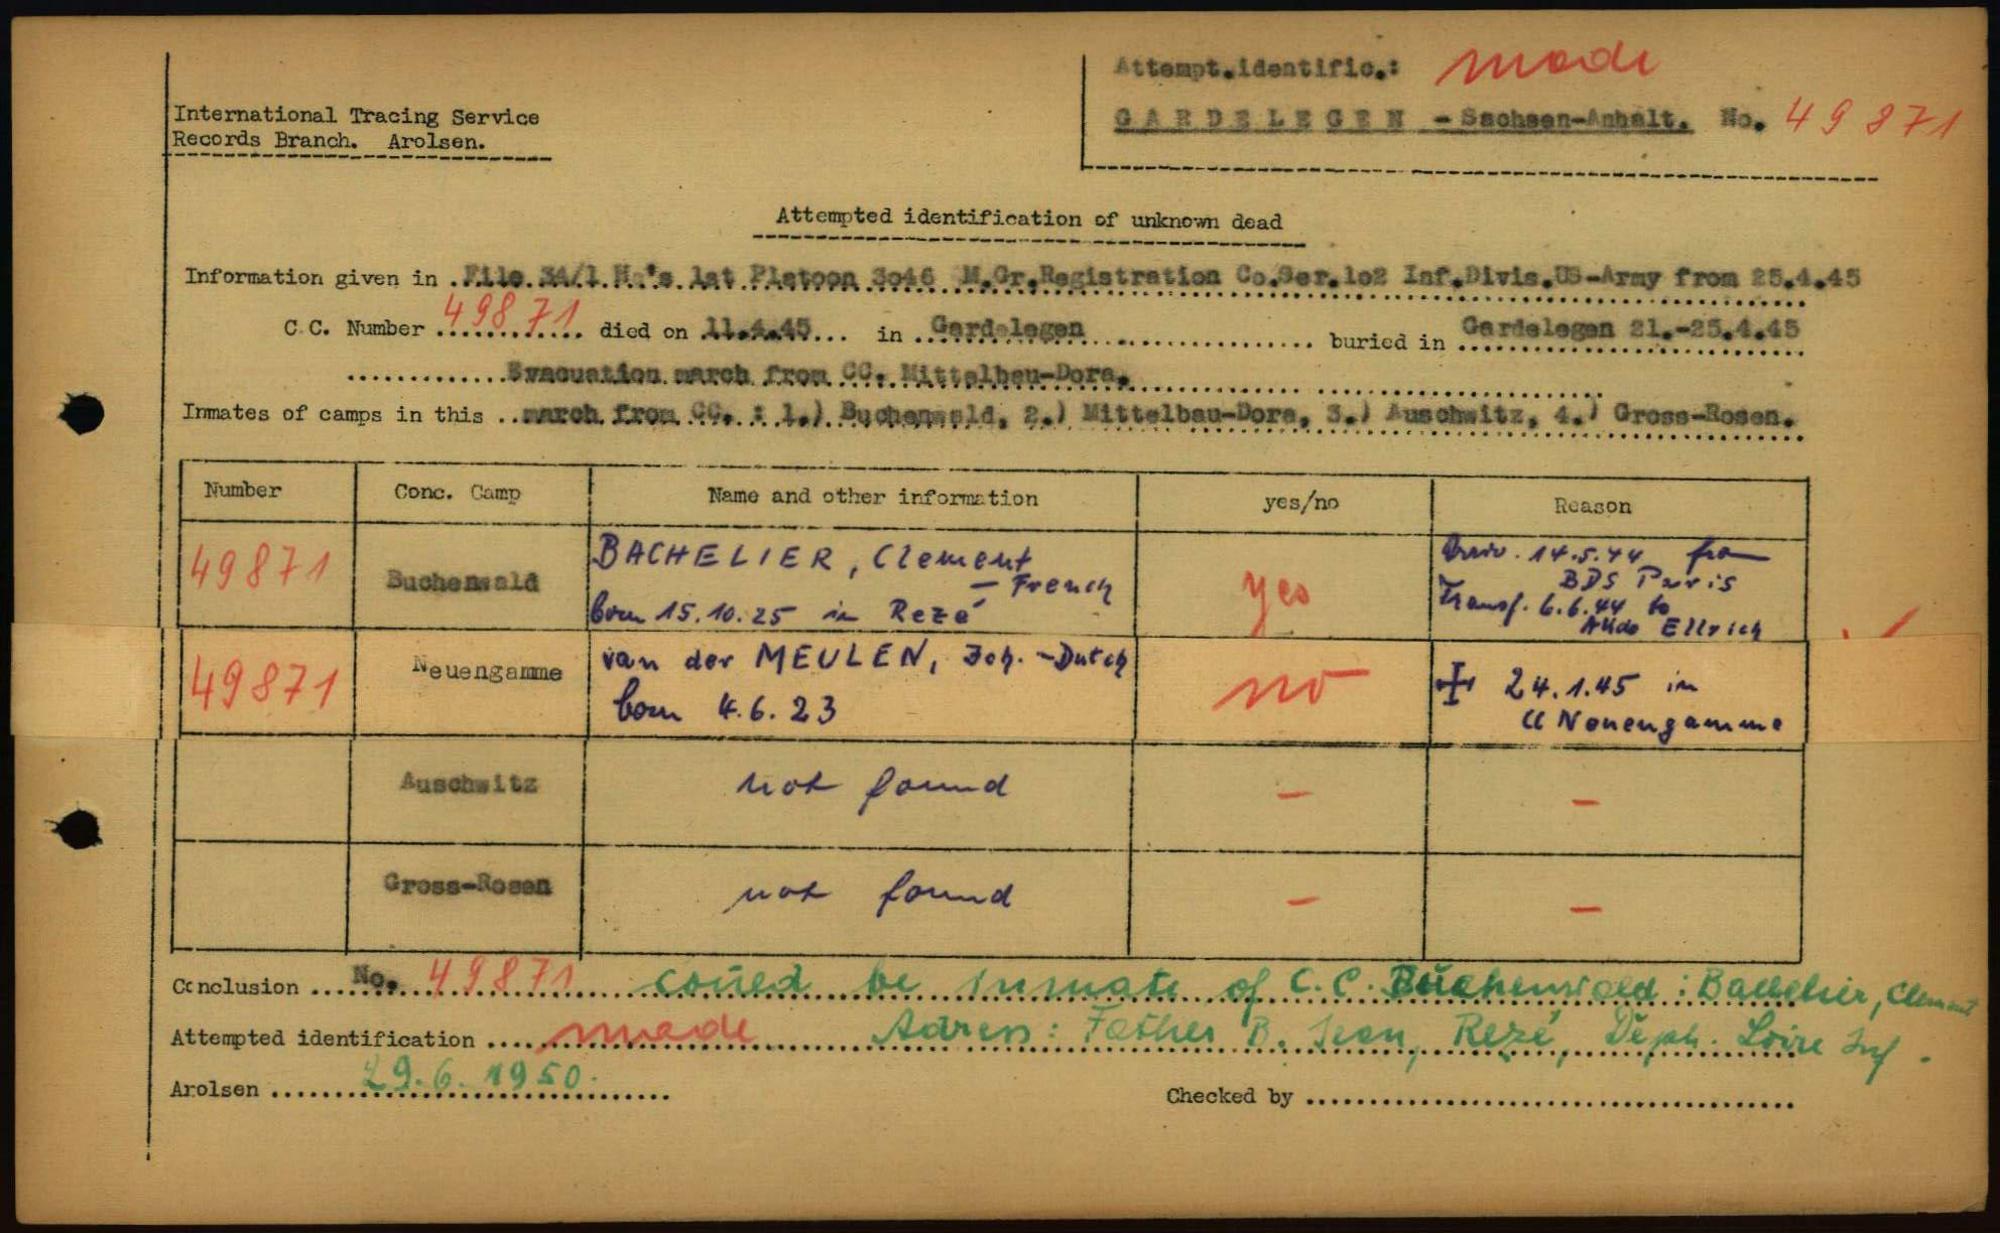 Attempt.identific.: made
International Tracing Service
Records Branch. Arolsen.
GARDELEGEN - Sachsen-Anhalt. No. 49871
Attempted identification of unknown dead
Information given in File 3A/1 Hq's 1st Platoon 3o46 M.Gr.Registration Co.Ser.1o2 Inf.Divis.US-Army from 25.4.45
C.C. Number 49871 died on 11.4.45 in Gardelegen buried in Gardelegen 21.-25.4.45
Evacuation march from CC. Mittelbau-Dora.
Inmates of camps in this march from CC. : 1.) Buchenwald, 2.) Mittelbau-Dora, 3.) Auschwitz, 4.) Gross-Rosen.
Number Conc. Camp Name and other information yes/no Reason
49871 Buchenwald BACHELIER, Clement
- French
born 15.10.25 in Rezé
yes
Arriv. 14.5.44 from
BDS Paris
Transf. 6.6.44 to
Akdo Ellrich
49871 Neuengamme van der MEULEN, Joh. - Dutch
born 4.6.23
no
24.1.45 in
CC Neuengamme
Auschwitz not found - -
Gross-Rosen not found - -
Conclusion No. 49871 coued be inmate of C.C. Buchenwald: Bachelier, Clement
Attempted identification made Adress: Father B. Jean, Rezé, Deph. Loire Inf.
Arolsen 29.6.1950.
Checked by